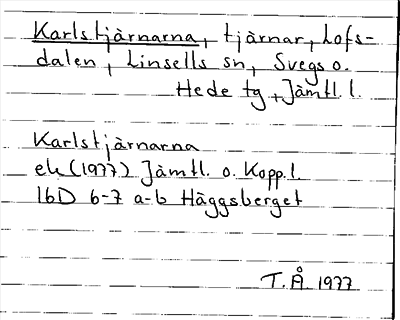 Karlstjärnarna, tjärnar, Lofs-
dalen, Linsells sn, Svegs o.
Hede tg, Jämtl. l.
Karlstjärnarna
ek (1977) Jämtl. o. Kopp. l.
16D 6-7 a-b Häggsberget
T. Å 1977